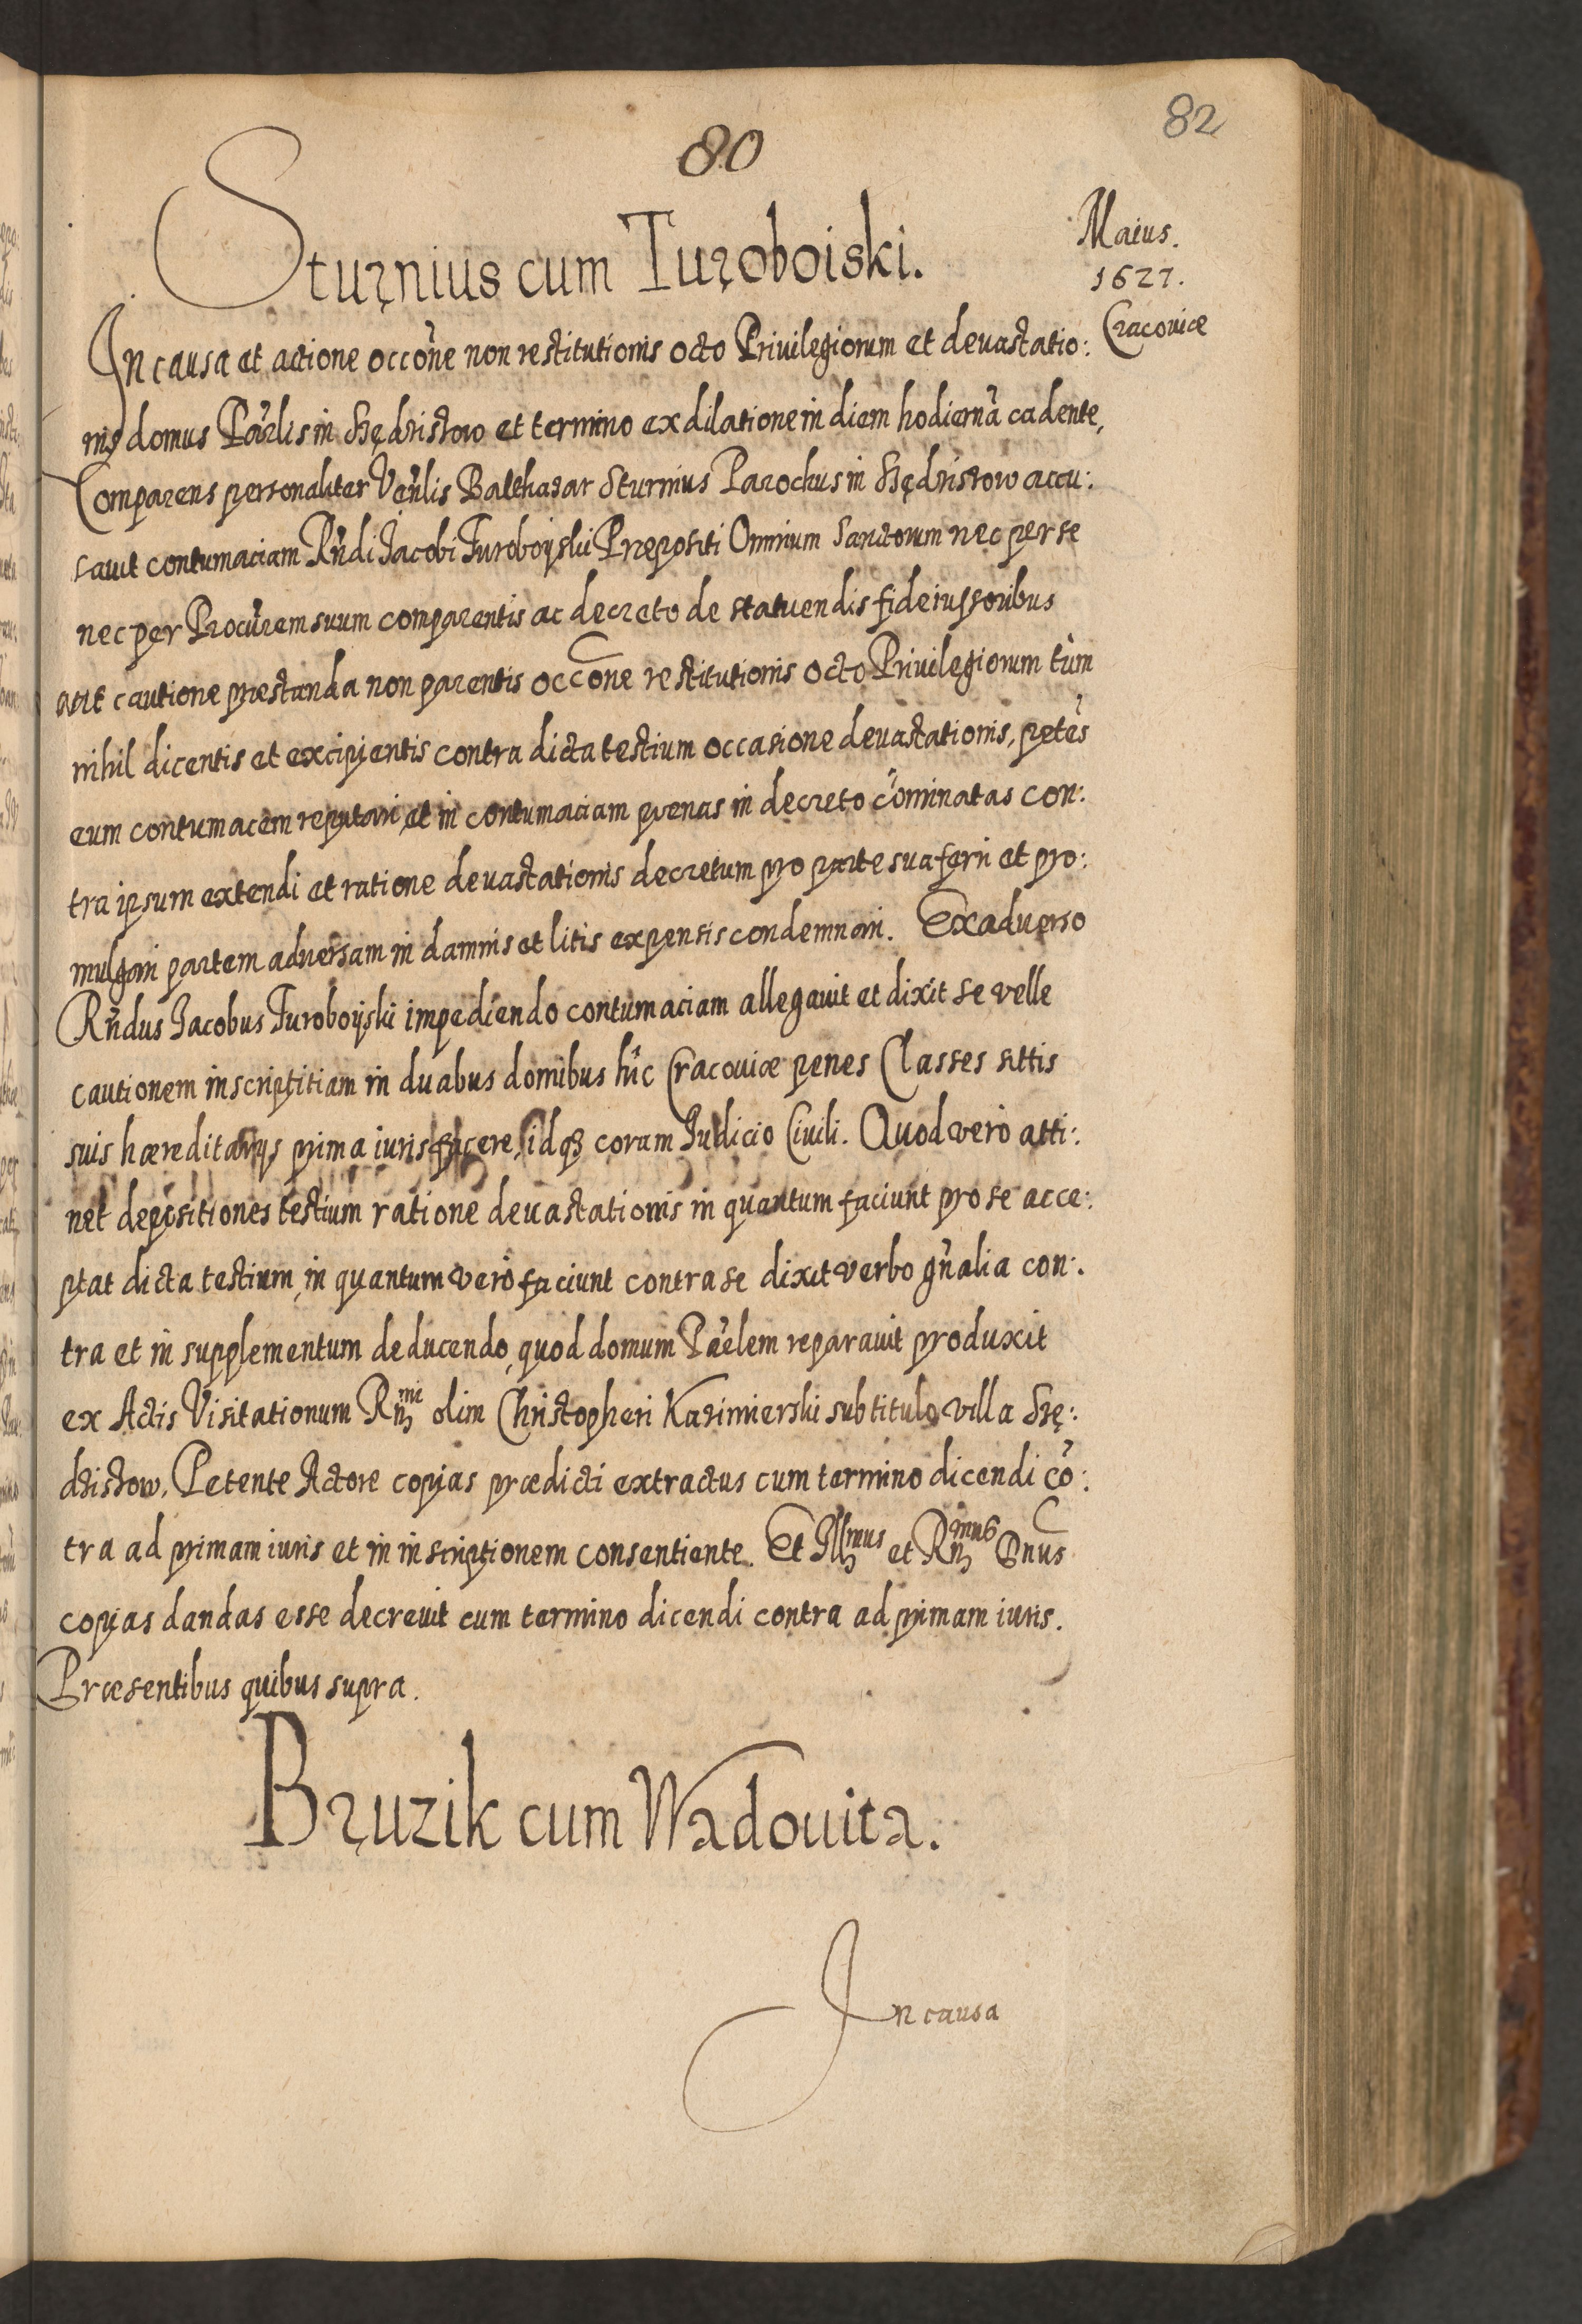 82
80
Maius.
1627.
Cracoviæ
Sturnius cum Turoboiski.
In causa et actione occõne non restitutionis octo Privilegiorum et devastatio:
nis domus Pãrlis in et termino ex dilatione in diem hodiernã cadente,
Comparens personaliter Veñlis Balthasar Sturnius Parochus in accu:
savit contumaciam Rñdi Jacobi Turoboijskii Præpositi Omnium Sanctorum nec per se
nec per Procũrem suum comparentis ac decreto de statuendis fideiussoribus
aut cautione præstanda non parentis occõne restitutionis octo Privilegiorum tùm
nihil dicentis et excipientis contra dicta testium occasione devastationis, petẽs
eum contumacem reputari, et in contumaciam pœnas in decreto cõminatas con:
tra ipsum extendi et ratione devastationis decretum pro parte sua ferri et pro:
mulgari partem adversam in damnis et litis expensis condemnari. Ex adverso
Rñdus Jacobus Turoboijski impediendo contumaciam allegavit et dixit se velle
cautionem inscriptitiam in duabus domibus hĩc Cracoviæ penes Classes sittis
suis hæreditarijs prima iuris facere, idq3 coram Judicio Civili. Quod verò atti:
net depositiones testium ratione devastationis in quantum faciunt pro se acce:
ptat dicta testium, in quantum verò faciunt contra se dixit verbo gñalia con:
tra et in supplementum deducendo, quod domum Pãelem reparavit produxit
ex Actis Visitationum Rm̃mi olim Christopheri Kazimierskii sub titulo villa
Petente Actore copias prædicti extractus cum termino dicendi cõ:
tra ad primam iuris et in inscriptionem consentiente. Et Illmus et Rmus Dnus
copias dandas esse decrevit cum termino dicendi contra ad primam iuris.
Præsentibus quibus supra.
Bruzik cum Wadovita.
In causa